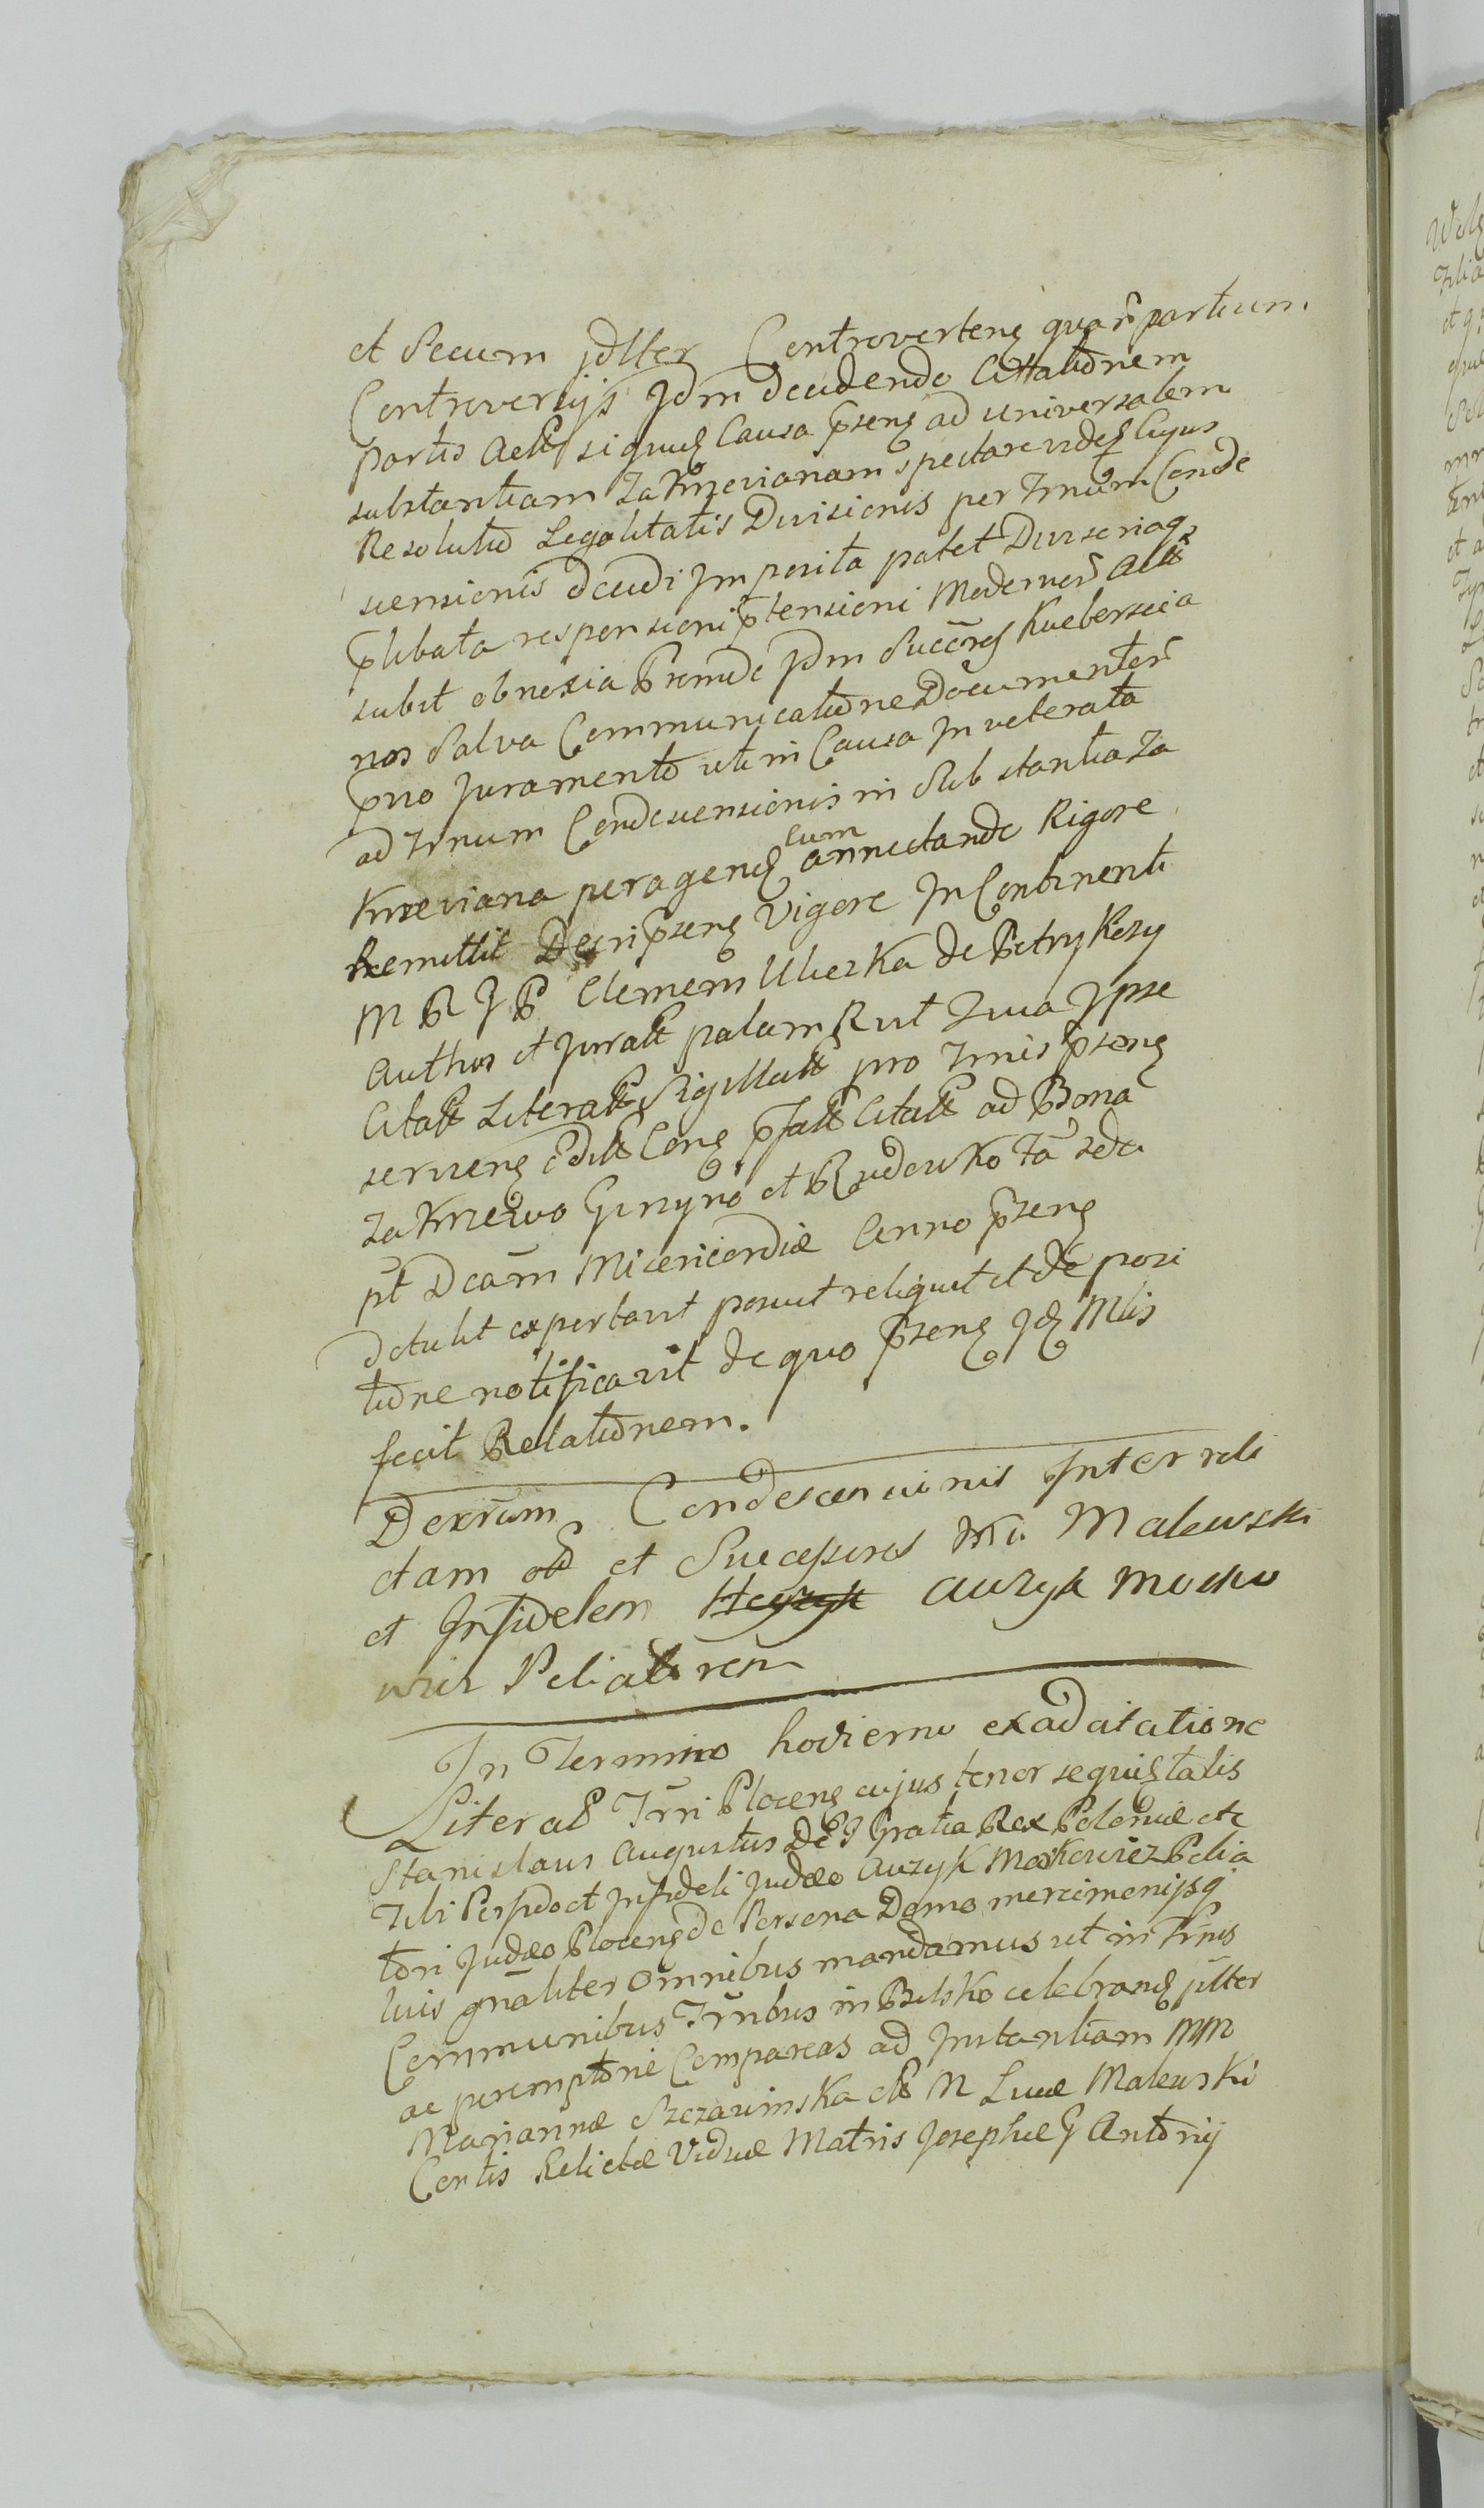 et Secum jdller Controverteng quar partium
Controversijs Jdm decidendo Cittatiõnem
partis Actt siquid Causa p̃seng ad universalem
substantiam Zakrzevianam spectare videt Cujus
Resolutio Legalitatis Divisionis per Trnum Conde
scensionis decidi Imposita patet Diverseriaq
p̃libata responsioni p̃tensioni Modernor Actt
subit obnoxia Proinde Jdm Succõres Kuebersecia
nos Salva Communicatiõne Documentor
p̃vio Juramento uti in Causa Inveterata
ad Trnum Condescensionis in Substantia Za
krzeviana perageng cum annectande Rigore
Remittit Decri p̃seng Vigore In Continenti
M R J P Clemens Uliezka de Petrykozy
Author et Juratt palam R ut Sua Ipse
Citatt Literatt Sigillatt pro Trnis p̃seng
servieng editt Cong p̃fatt Citatt ad Bona
Zakrzewo Ginyno et Rudowko Fã 2da
pt Dcam Misericordiæ Anno p̃seng
detulit exportavit posuit reliquit et de posi
tiõne notificavit de quo p̃seng Jd Mlis
fecit Relatiõnem.
Decrum Condescensionis Inter reli
ctam et Successores Mi Malewski
et Infidelem Auzyk Mosko
wicz Peliatorem
In Termino hodierno ex adcitatione
Literali Trri Ploceng cujus tenor sequit talis
Stanislaus Augustus Dei Gratia Rex Poloniæ etc
Tibi Perfido et Infideli Judæo Auzyk Moskowicz Pelia
tori Judæo Ploceng de Persona Domo mercimonijsq
tuis gnaliter omnibus mandamus ut in Trnis
Communibus Trnbus in Bielsko celebrang jtter
ac peremptorie Compareas ad Instantiam MM
Mariannæ Szczawinska M Lucæ Malewski
Contis Relictæ Viduæ Matris Josephi Antonij